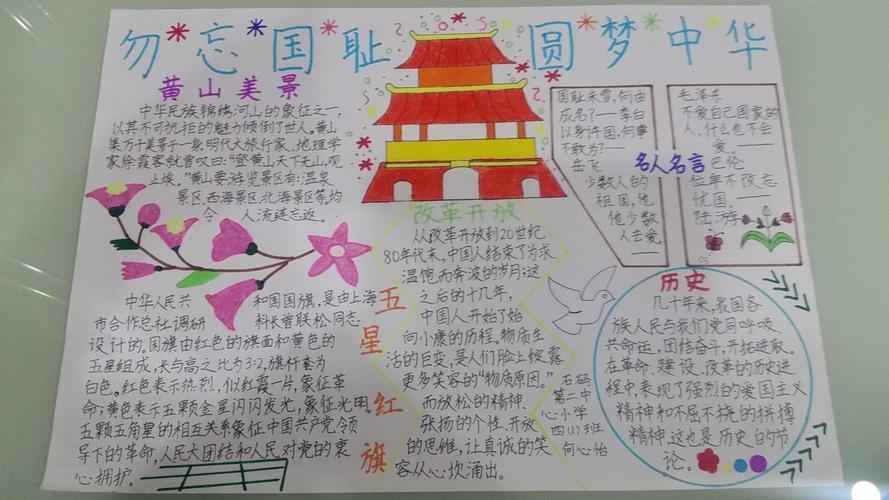 勿忘国耻 圆梦中华
黄山美景
中华民族锦绣河山的象征之一,
以其不可抗拒的魅力倾倒了世人。黄山
集万千美于一身,明代大旅行家、地理学
家徐霞客就曾叹曰:“登黄山天下无山,观
止矣。”黄山要游览景区有:温泉
景区、西海景区、北海景区等,均
令 人流连忘返。
国耻未雪,何由
成名?——李白
以身许国,何事
不敢为?——
岳飞
少数人的
祖国,他
他少数
人去爱
——
名人名言
毛泽东
不爱自己国家的
人,什么也不会
爱。——
巴伦
位卑不敢忘
忧国。——
陆游
改革开放
从改革开放到20世纪
80年代末,中国人结束了为求
温饱而奔波的岁月;这
之后的十几年,
中国人开始了始
向小康的历程。物质生
活的巨变,是人们脸上绽露
更多笑容的“物质原因。”
而放松的精神、
张扬的个性、开放
的思维,让真诚的笑
容从心坎涌出。
五星红旗
中华人民共 和国国旗,是由上海
市合作总社调研 科长曾联松同志
设计的。国旗由红色的旗面和黄色的
五星组成,长与高之比为3:2,旗杆套为
白色。红色表示热烈,似红霞一片,象征革
命;黄色表示五颗金星闪闪发光,象征光明,
五颗五角星的相互关系象征中国共产党领
导下的革命,人民大团结和人民对党的衷
心拥护。
历史
几十年来,我国各
族人民与我们党同呼吸、
共命运,团结奋斗,开拓进取。
在革命、建设、改革的历史进
程中,表现了强烈的爱国主义
精神和不屈不挠的拼搏
精神。这也是历史的节
论。
第二中
心小学
四(4)班
何心怡